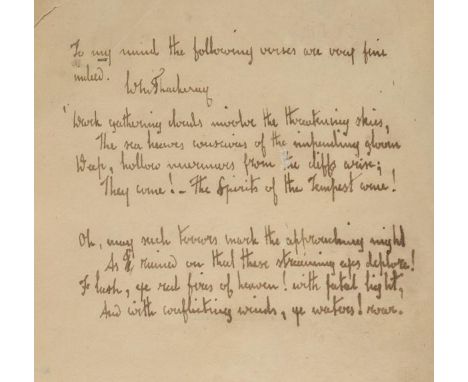 To my mind the following verses are very fine
indeed.
WM Thackeray
Dark gathering clouds involve the threatening skies,
The sea heaves conscious of the impending gloom
Deep, hollow murmurs from the cliffs arise;
They come! - The Spirits of the Tempest come!
Oh, may such terrors mark the approaching night
As reigned on that these streaming eyes deplore!
Flash, ye red fires of heaven! with fatal light,
And with conflicting winds, ye waters! roar.